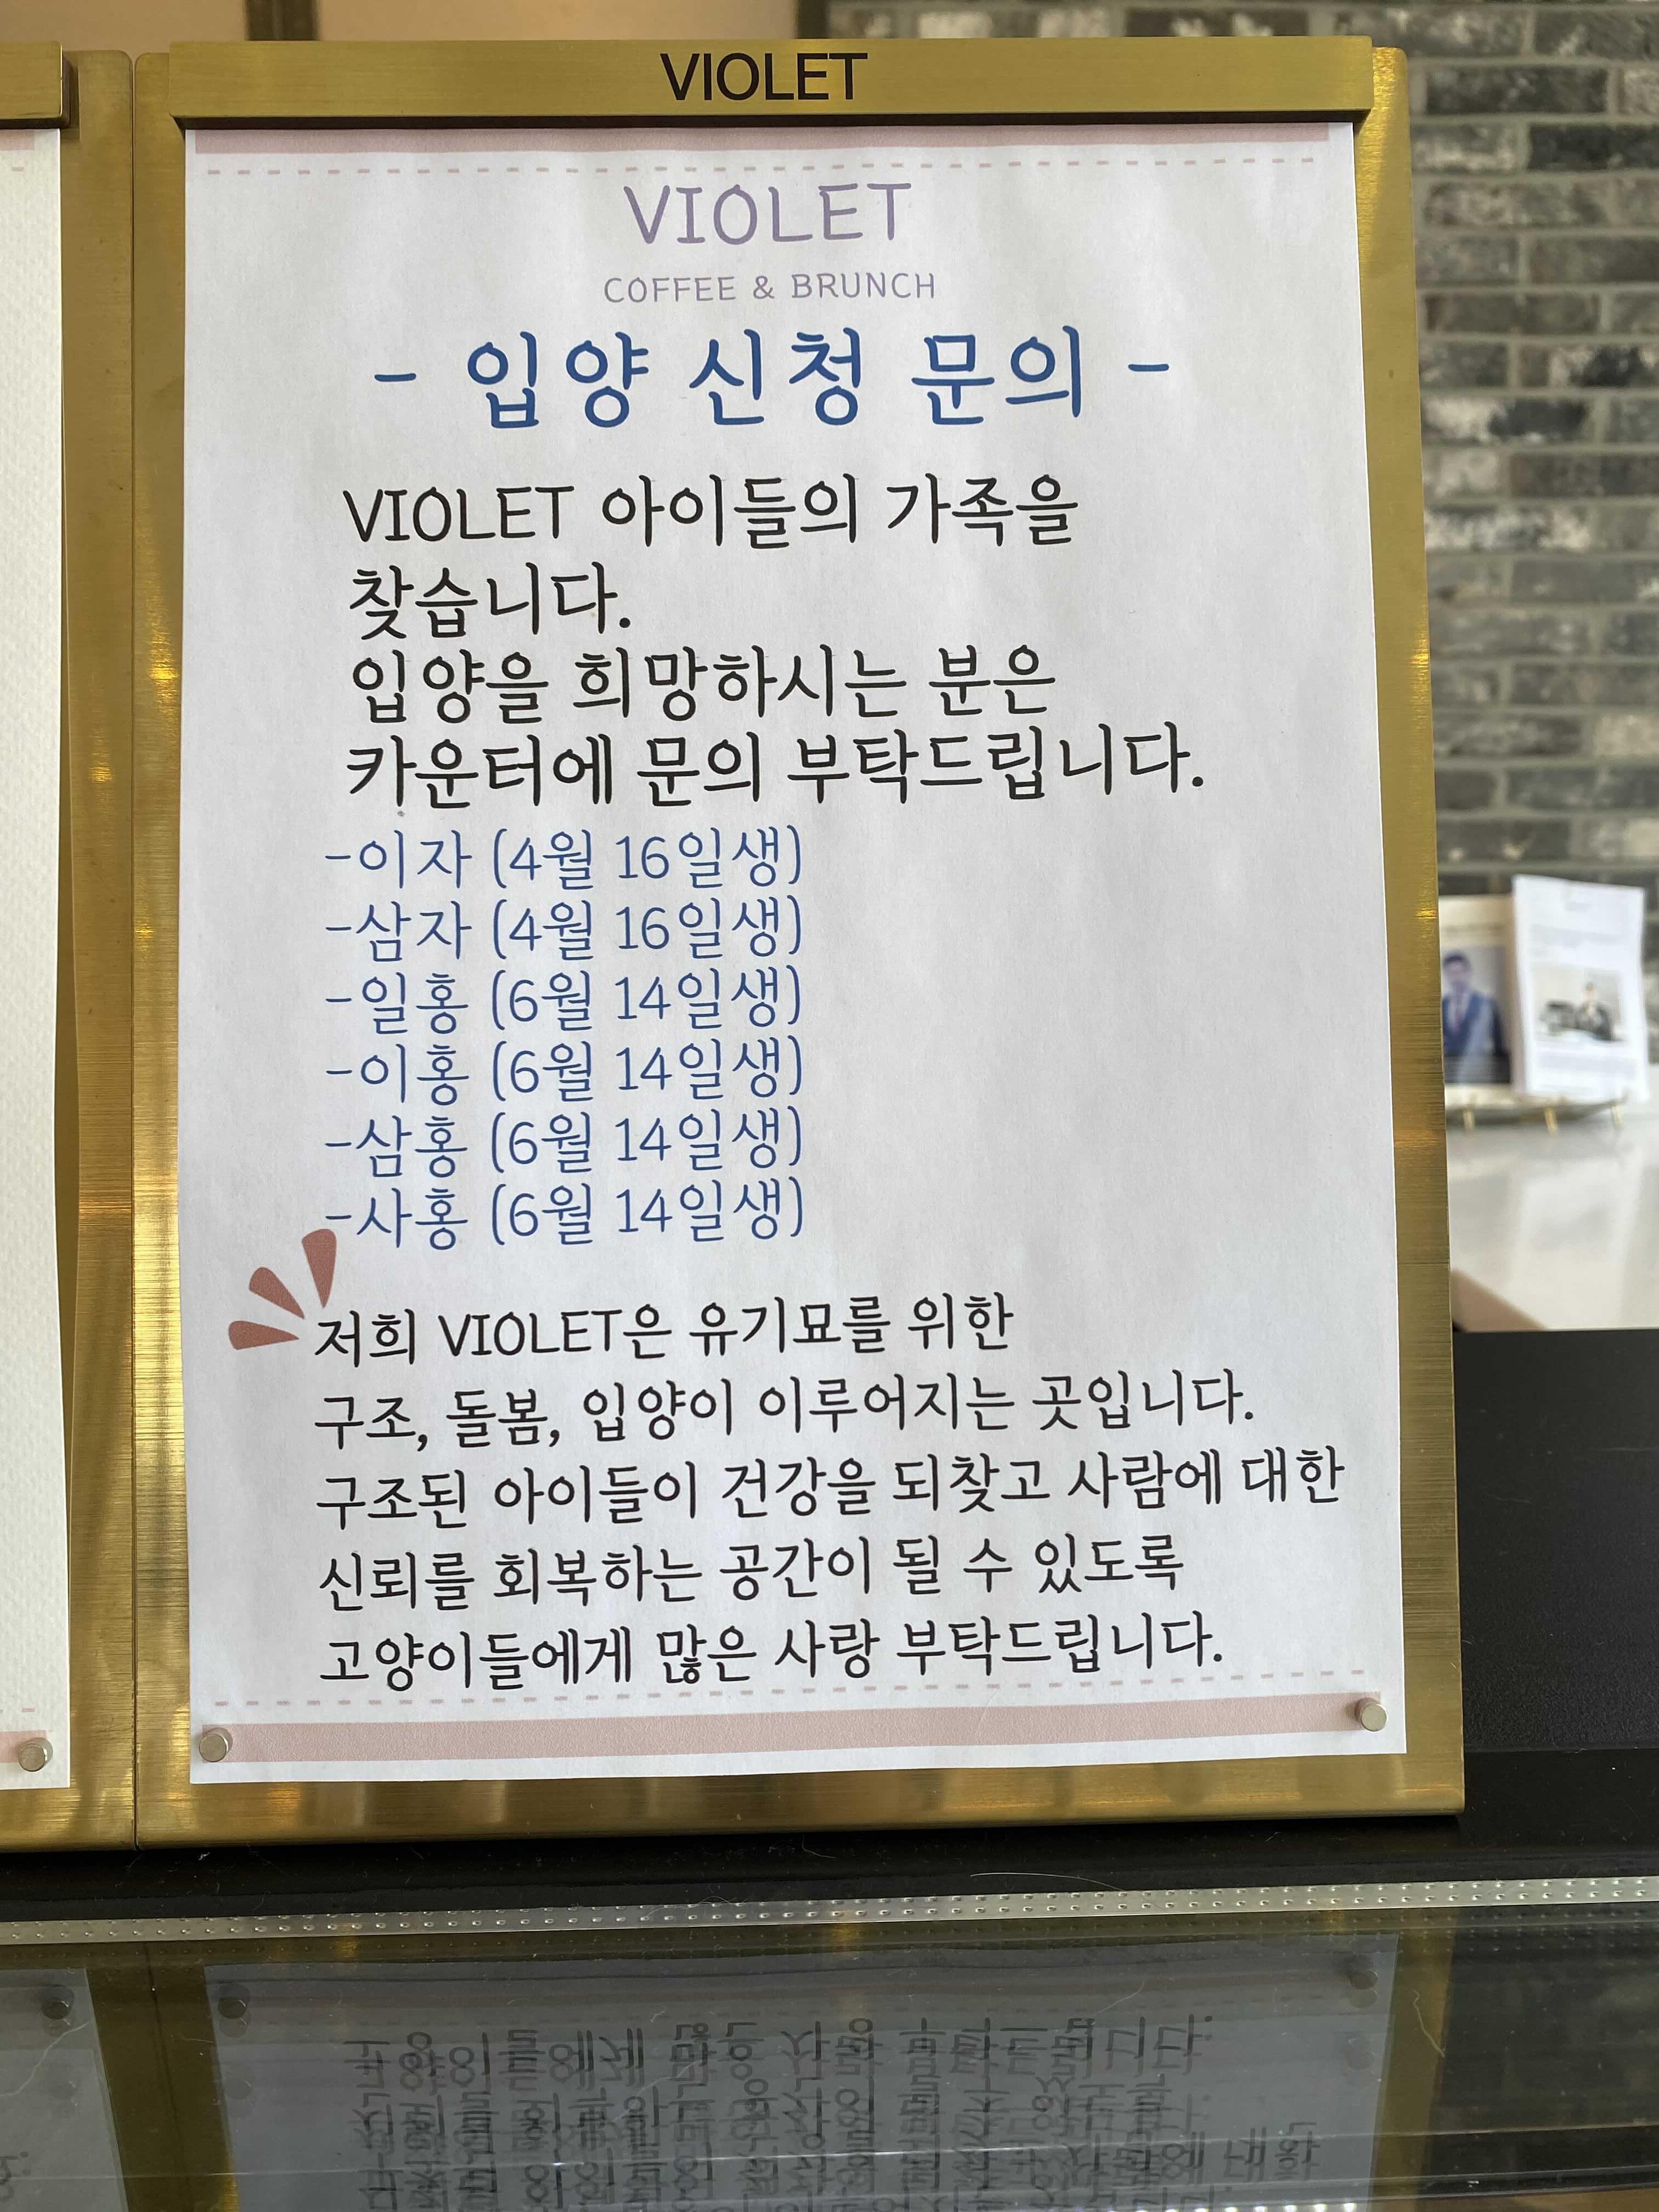 VIOLET
VIOLET
COFFEE & BRUNCH
- 입양 신청 문의 -
VIOLET 아이들의 가족을
찾습니다.
입양을 희망하시는 분은
카운터에 문의 부탁드립니다.
-이자 (4월 16일생)
-삼자 (4월 16일생)
-일홍 (6월 14일생)
-이홍 (6월 14일생)
-삼홍 (6월 14일생)
-사홍 (6월 14일생)
저희 VIOLET은 유기묘를 위한
구조, 돌봄, 입양이 이루어지는 곳입니다.
구조된 아이들이 건강을 되찾고 사람에 대한
신뢰를 회복하는 공간이 될 수 있도록
고양이들에게 많은 사랑 부탁드립니다.